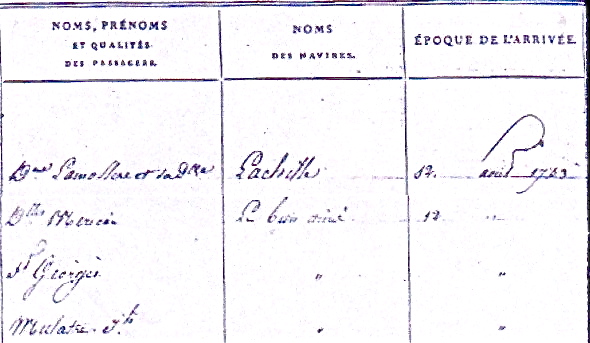 NOMS, PRÉNOMS
ET QUALITÉS
DES PASSAGERS.
NOMS
DES NAVIRES.
ÉPOQUE DE L'ARRIVÉE.
et sa Dlle L'achille 12. 1723
Dlles Le bien aimé 12 "
Sr George " "
Mulatre " "